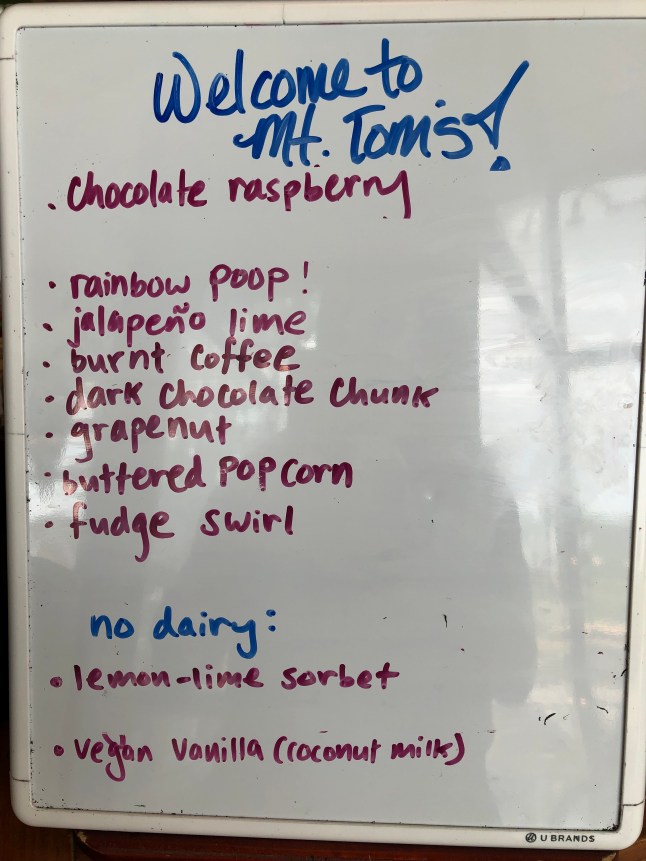 Welcome to
Mt. Tom's!
• chocolate raspberry
• rainbow poop!
• jalapeño lime
• burnt coffee
• dark chocolate chunk
• grapenut
• buttered popcorn
• fudge swirl
no dairy:
• lemon-lime sorbet
• vegan vanilla (coconut milk)
U BRANDS